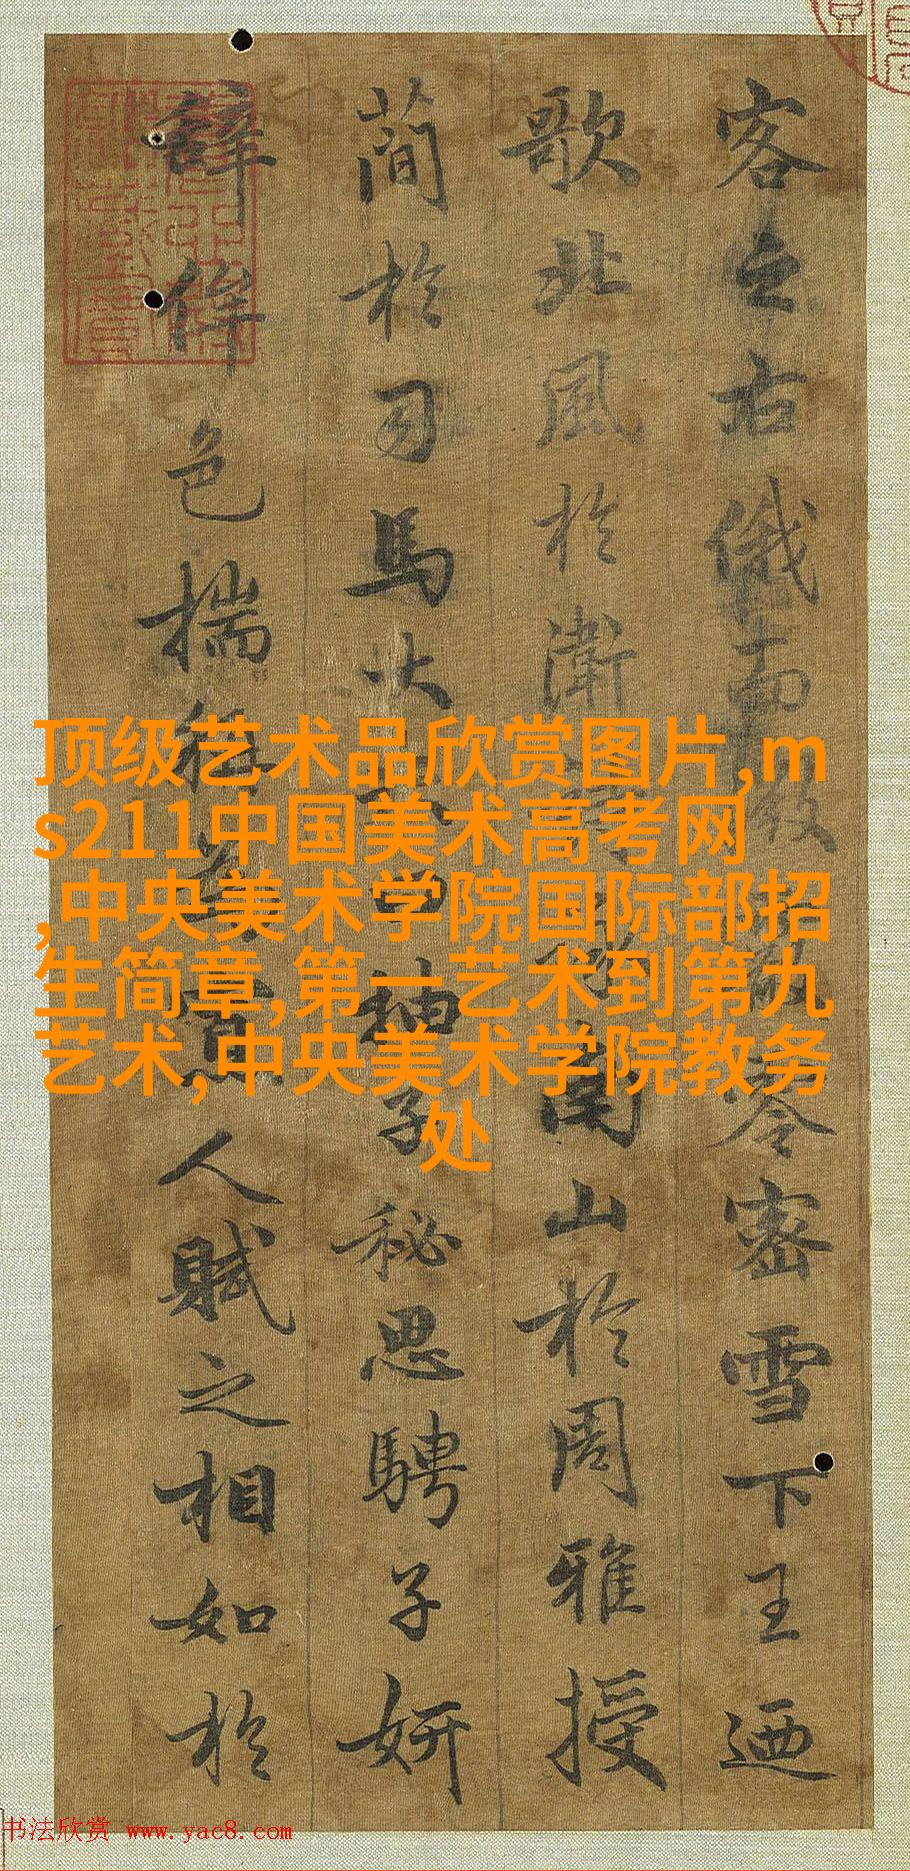 客之右俄而零密雪下王迺
歌北風於衛南山於周雅授
簡於司馬大曰抽子秘思騁子妍
辭侔色揣稱人賦之相如於
顶级艺术品欣赏图片,m
s211中国美术高考网
,中央美术学院国际部招
生简章,第一艺术到第九
艺术,中央美术学院教务
处
书法欣赏 www.yac8.com